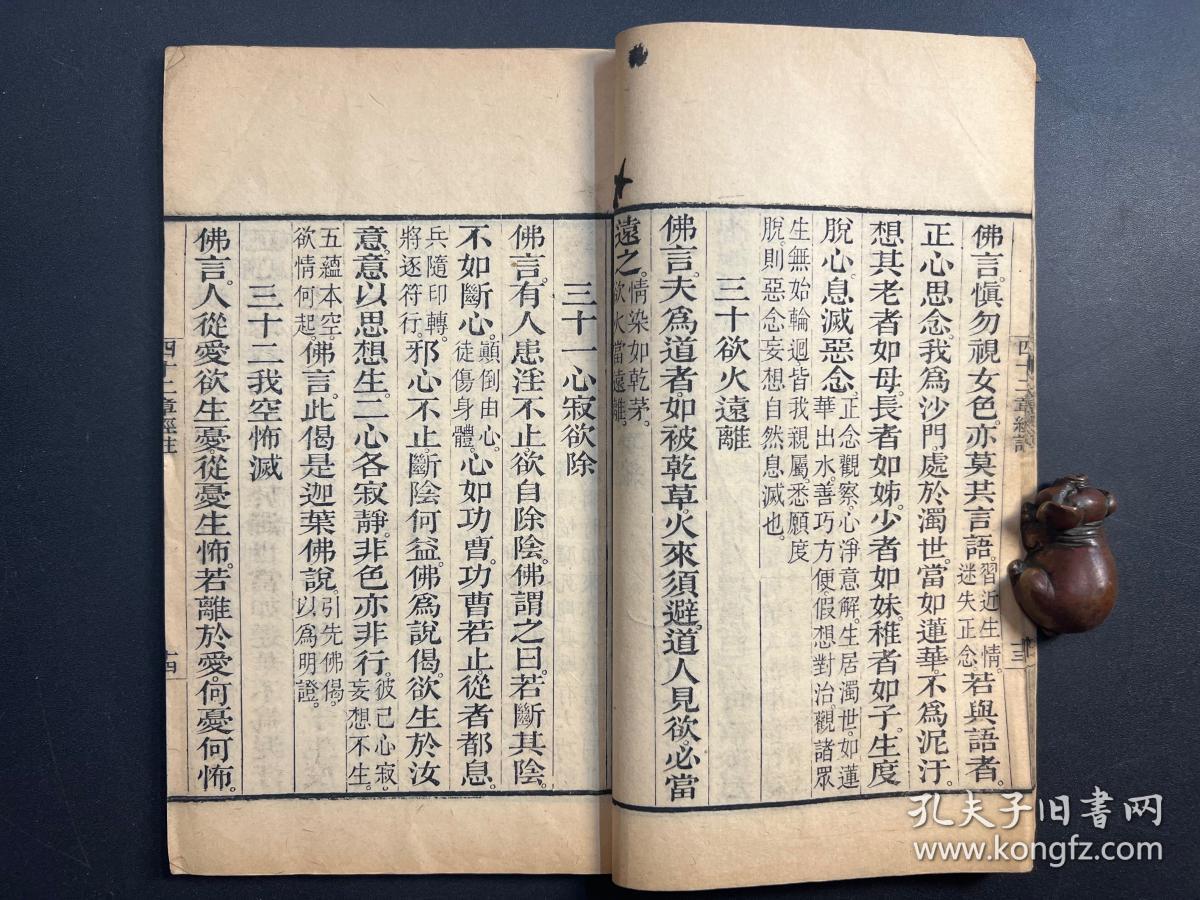 佛言。慎勿視女色。亦莫共言語。習近生情。迷失正念。若與語者。
正心思念。我爲沙門。處於濁世。當如蓮華。不爲泥汙。
想其老者如母。長者如姊。少者如妹。稚者如子。生度
脫心。息滅惡念。正念觀察。心淨意解。生居濁世。如蓮華出水。善巧方便。假想對治。觀諸眾
生無始輪迴皆我親屬。悉願度脫。則惡念妄想自然息滅也。
三十欲火遠離
佛言。夫爲道者。如被乾草。火來須避。道人見欲。必當
遠之。情染如乾茅。欲火當遠離。
三十一心寂欲除
佛言。有人患淫不止。欲自除陰。佛謂之曰。若斷其陰。
不如斷心。顚倒由心。徒傷身體。心如功曹。功曹若止。從者都息。
兵隨印轉。將逐符行。邪心不止。斷陰何益。佛爲說偈。欲生於汝
意。意以思想生。二心各寂靜。非色亦非行。彼已心寂。妄想不生。
五蘊本空。欲情何起。佛言。此偈是迦葉佛說。引先佛偈。以爲明證。
三十二我空怖滅
佛言。人從愛欲生憂。從憂生怖。若離於愛。何憂何怖。
四十二章經註
十四
孔夫子旧书网
www.kongfz.com